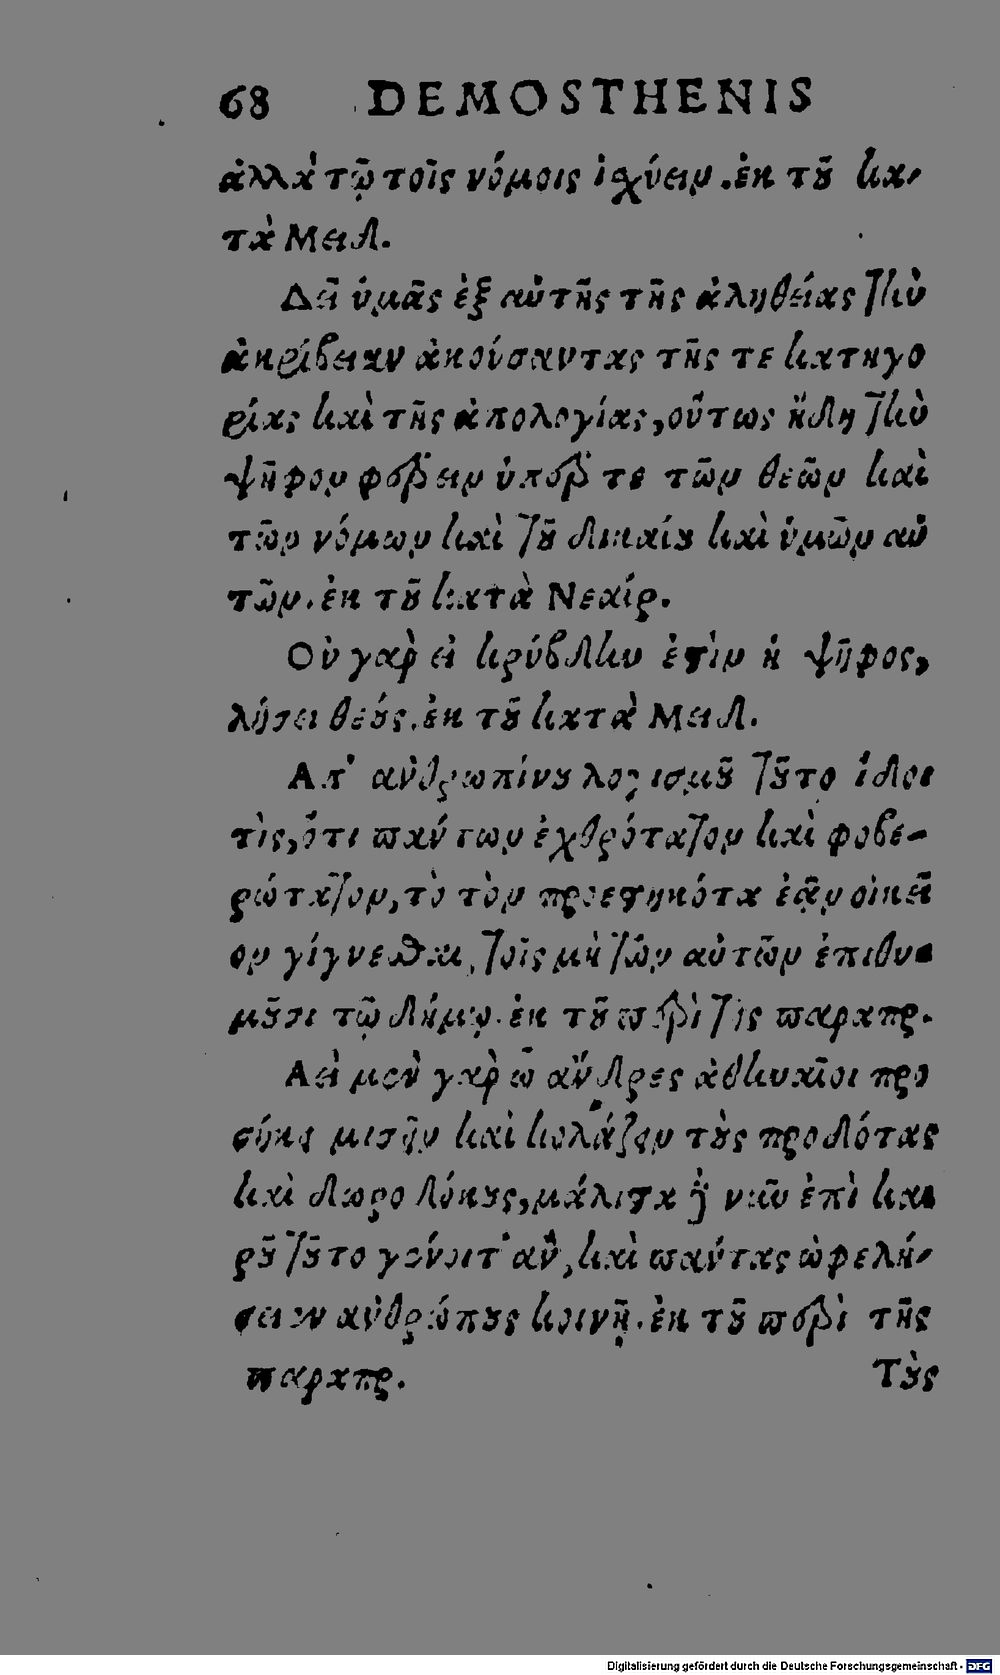 68 DEMOSTHENIS
ἀλλὰ τῷ τοῖς νόμοις ἰσχύειν. ἐκ τοῦ κα-
τὰ Μειδ.
Δεῖ ὑμᾶς ἐξ αὐτῆς τῆς ἀληθείας τὴν
ἀκρίβειαν ἀκούσαντας τῆς τε κατηγο
ρίας καὶ τῆς ἀπολογίας, οὕτως ἤδη τὴν
ψῆφον φέρειν ὑπέρ τε τῶν θεῶν καὶ
τῶν νόμων καὶ τοῦ δικαίου καὶ ὑμῶν αὐ
τῶν. ἐκ τοῦ κατὰ Νεαίρ.
Οὐ γὰρ εἰ κρύβδην ἐστὶν ἡ ψῆφος,
λήσει θεούς. ἐκ τοῦ κατὰ Μειδ.
Απ' ἀνθρωπίνου λογισμοῦ τοῦτο ἴδοι
τὶς, ὅτι πάντων ἐχθρότατον καὶ φοβε-
ρώτατον, τὸ τὸν προεστηκότα ἐᾶν οἰκεῖ
ον γίγνεσθαι, τοῖς μὴ τῶν αὐτῶν ἐπιθυ-
μοῦσι τῷ δήμῳ. ἐκ τοῦ περὶ τῆς παραπρ.
Αεὶ μὲν γὰρ ὦ ἄνδρες ἀθηναῖοι προ
σήκει μισεῖν καὶ κολάζειν τοὺς προδότας
καὶ δωροδόκους, μάλιστα δὲ νῦν ἐπὶ και
ροῦ τοῦτο γένοιτ' ἂν, καὶ πάντας ὠφελή-
σειεν ἀνθρώπους κοινῇ. ἐκ τοῦ περὶ τῆς
παραπρ. Τοὺς
Digitalisierung gefördert durch die Deutsche Forschungsgemeinschaft - DFG